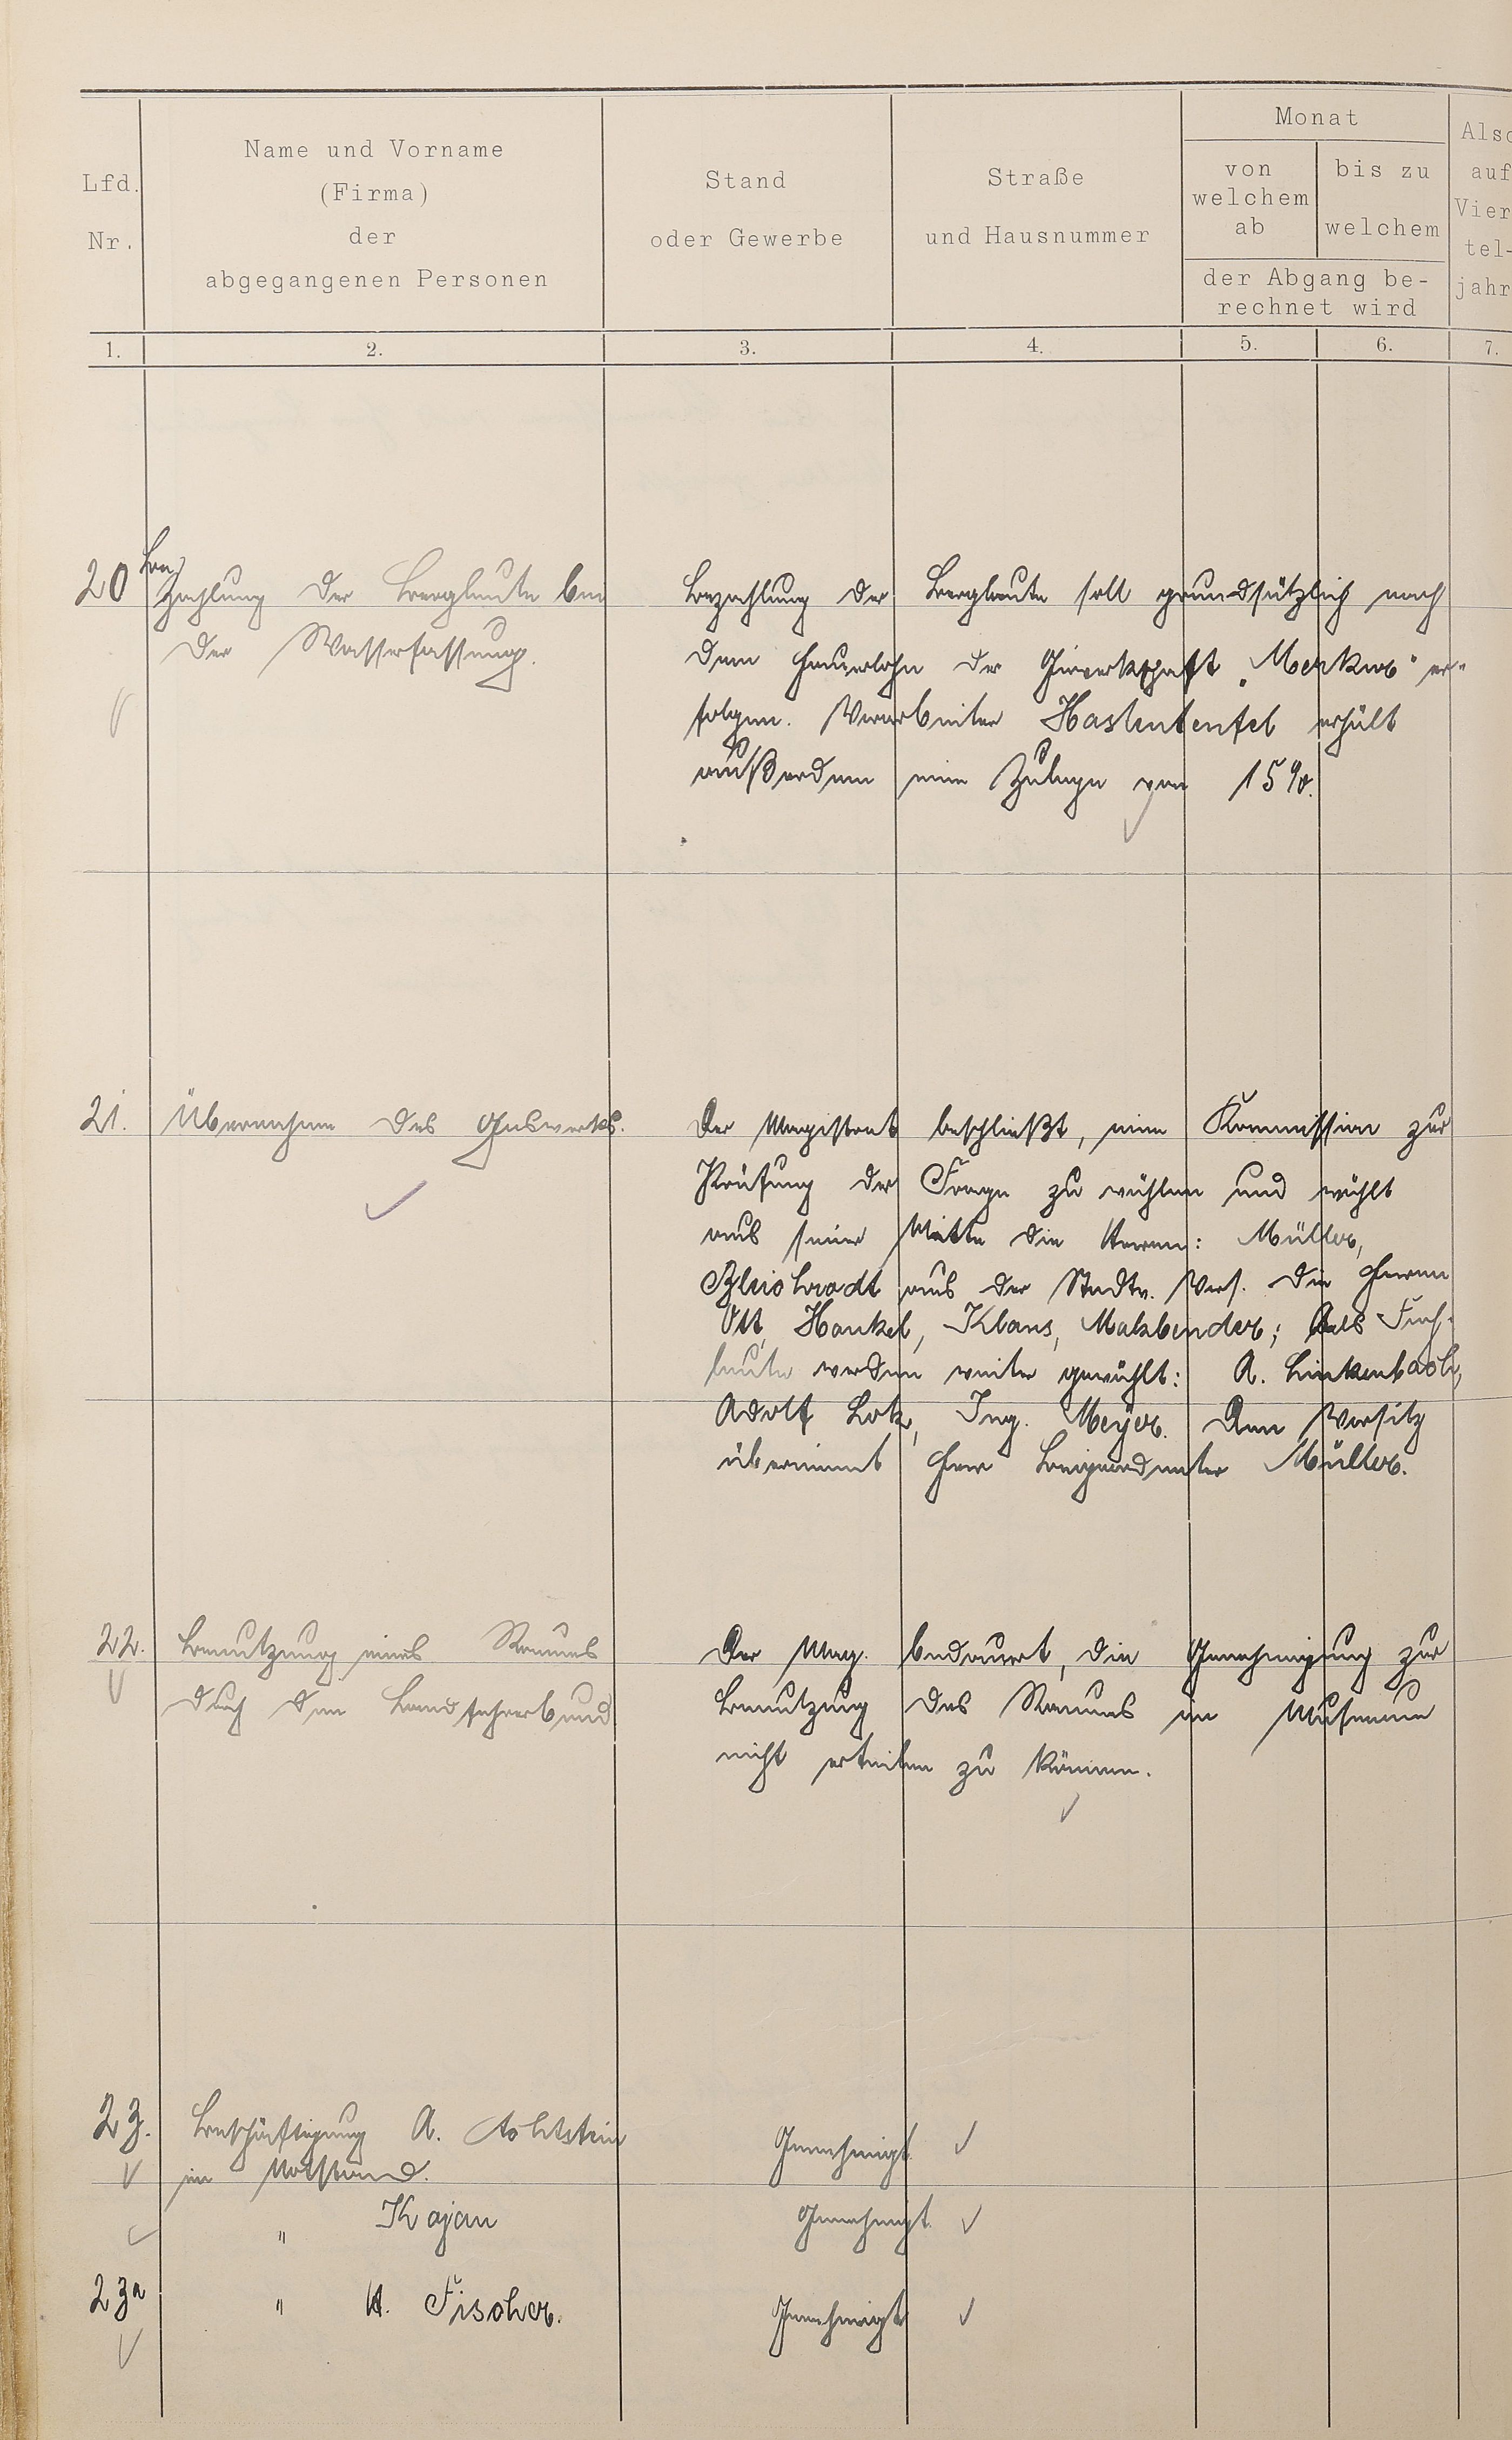 Lfd.
Nr.
Name und Vorname
(Firma)
der
abgegangenen Personen
Stand
oder Gewerbe
Straße
und Hausnummer
Monat
von
welchem
ab
bis zu
welchem
der Abgang be-
rechnet wird
Also
auf
Vier
tel-
jahr
1. 2. 3. 4. 5. 6. 7.
20 Be
Zahlung der Bergleute bei
der Wasserfassung.
Bezahlung der Bergleute soll grundsätzlich nach
dem Hauerlohn der Gewerkschaft „Merkur" er-
folgen. Vorarbeiter Hastenteufel erhält
außerdem eine Zulage von 15%.
21. Übernahme des Gaswerks.
Der Magistrat beschließt, eine Kommission zur
Prüfung der Frage zu wählen und wählt
aus seiner Mitte die Herren: Müller,
Bleichrodt aus der Stadtv. Vers. die Herren
Ott, Hankel, Klaus, Malzbender; Als Fach-
leute werden weiter gewählt: A. Linkenbach,
Adolf Lotz, Ing. Meyer. Den Vorsitz
übernimmt Herr Beigeordneter Müller.
22. Benutzung eines Raumes
durch den Landjahrerbund
Der Mag. bedauert, die Genehmigung zur
Benutzung des Raumes im Museum
nicht erteilen zu können.
23. Beschäftigung A. Achtstein
im Notstand.
Genehmigt.
" Kajan
Genehmigt.
23a " A. Fischer.
Genehmigt